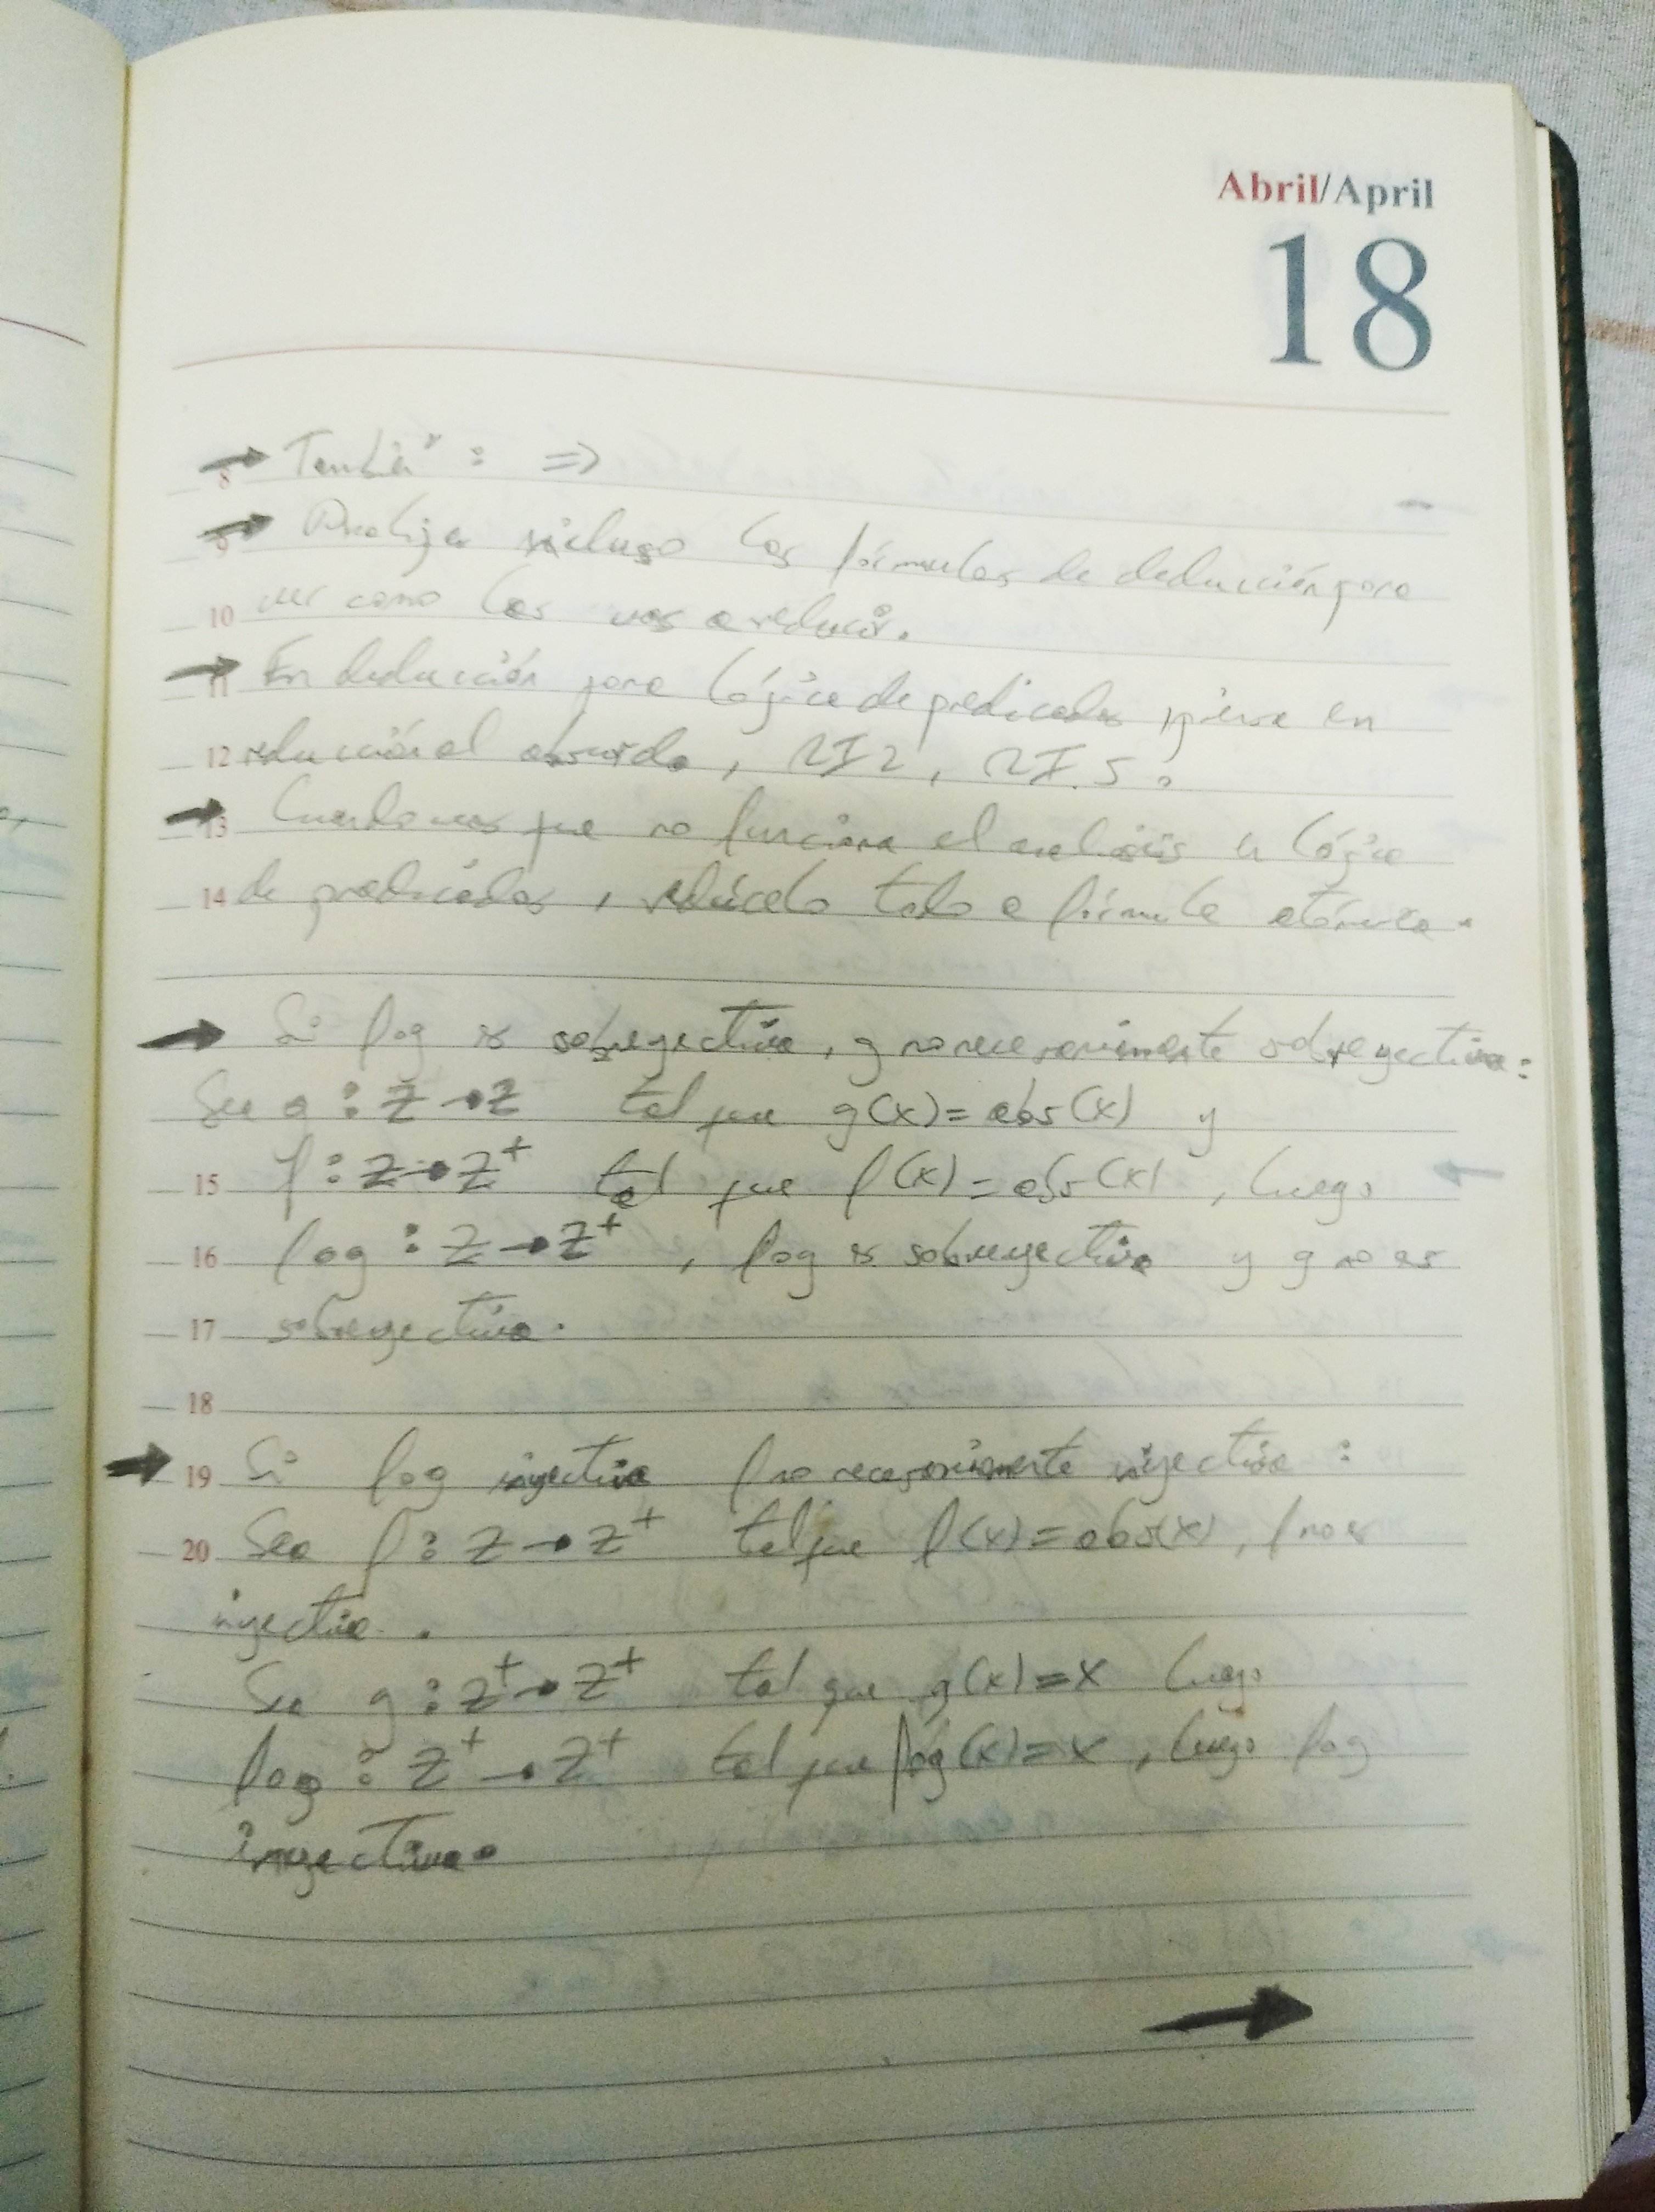 Abril/April
18
8 → También : ⇒
9 → Analiza incluso las fórmulas de deducción para
10 ver como las vas a reducir.
11 → En deducción para lógica de predicados piensa en
12 reducción al absurdo,
13 → Cuando veas que no funciona el análisis en lógica
14 de predicados, redúcelo todo a fórmula atómica.
→ Si fog es sobreyectiva, g no necesariamente sobreyectiva:
Sea g : Z → Z tal que g(x) = abs(x) y
15 f : Z → Z⁺ tal que f(x) = abs(x), luego
16 fog : Z → Z⁺, fog es sobreyectiva y g no es
17 sobreyectiva.
18
19 → Si fog inyectiva f no necesariamente inyectiva :
20 Sea f : Z → Z⁺ tal que f(x) = abs(x), f no es
inyectiva.
Sea g : Z⁺ → Z⁺ tal que g(x) = x luego
fog : Z⁺ → Z⁺ tal que fog(x) = x, luego fog
inyectiva.
→